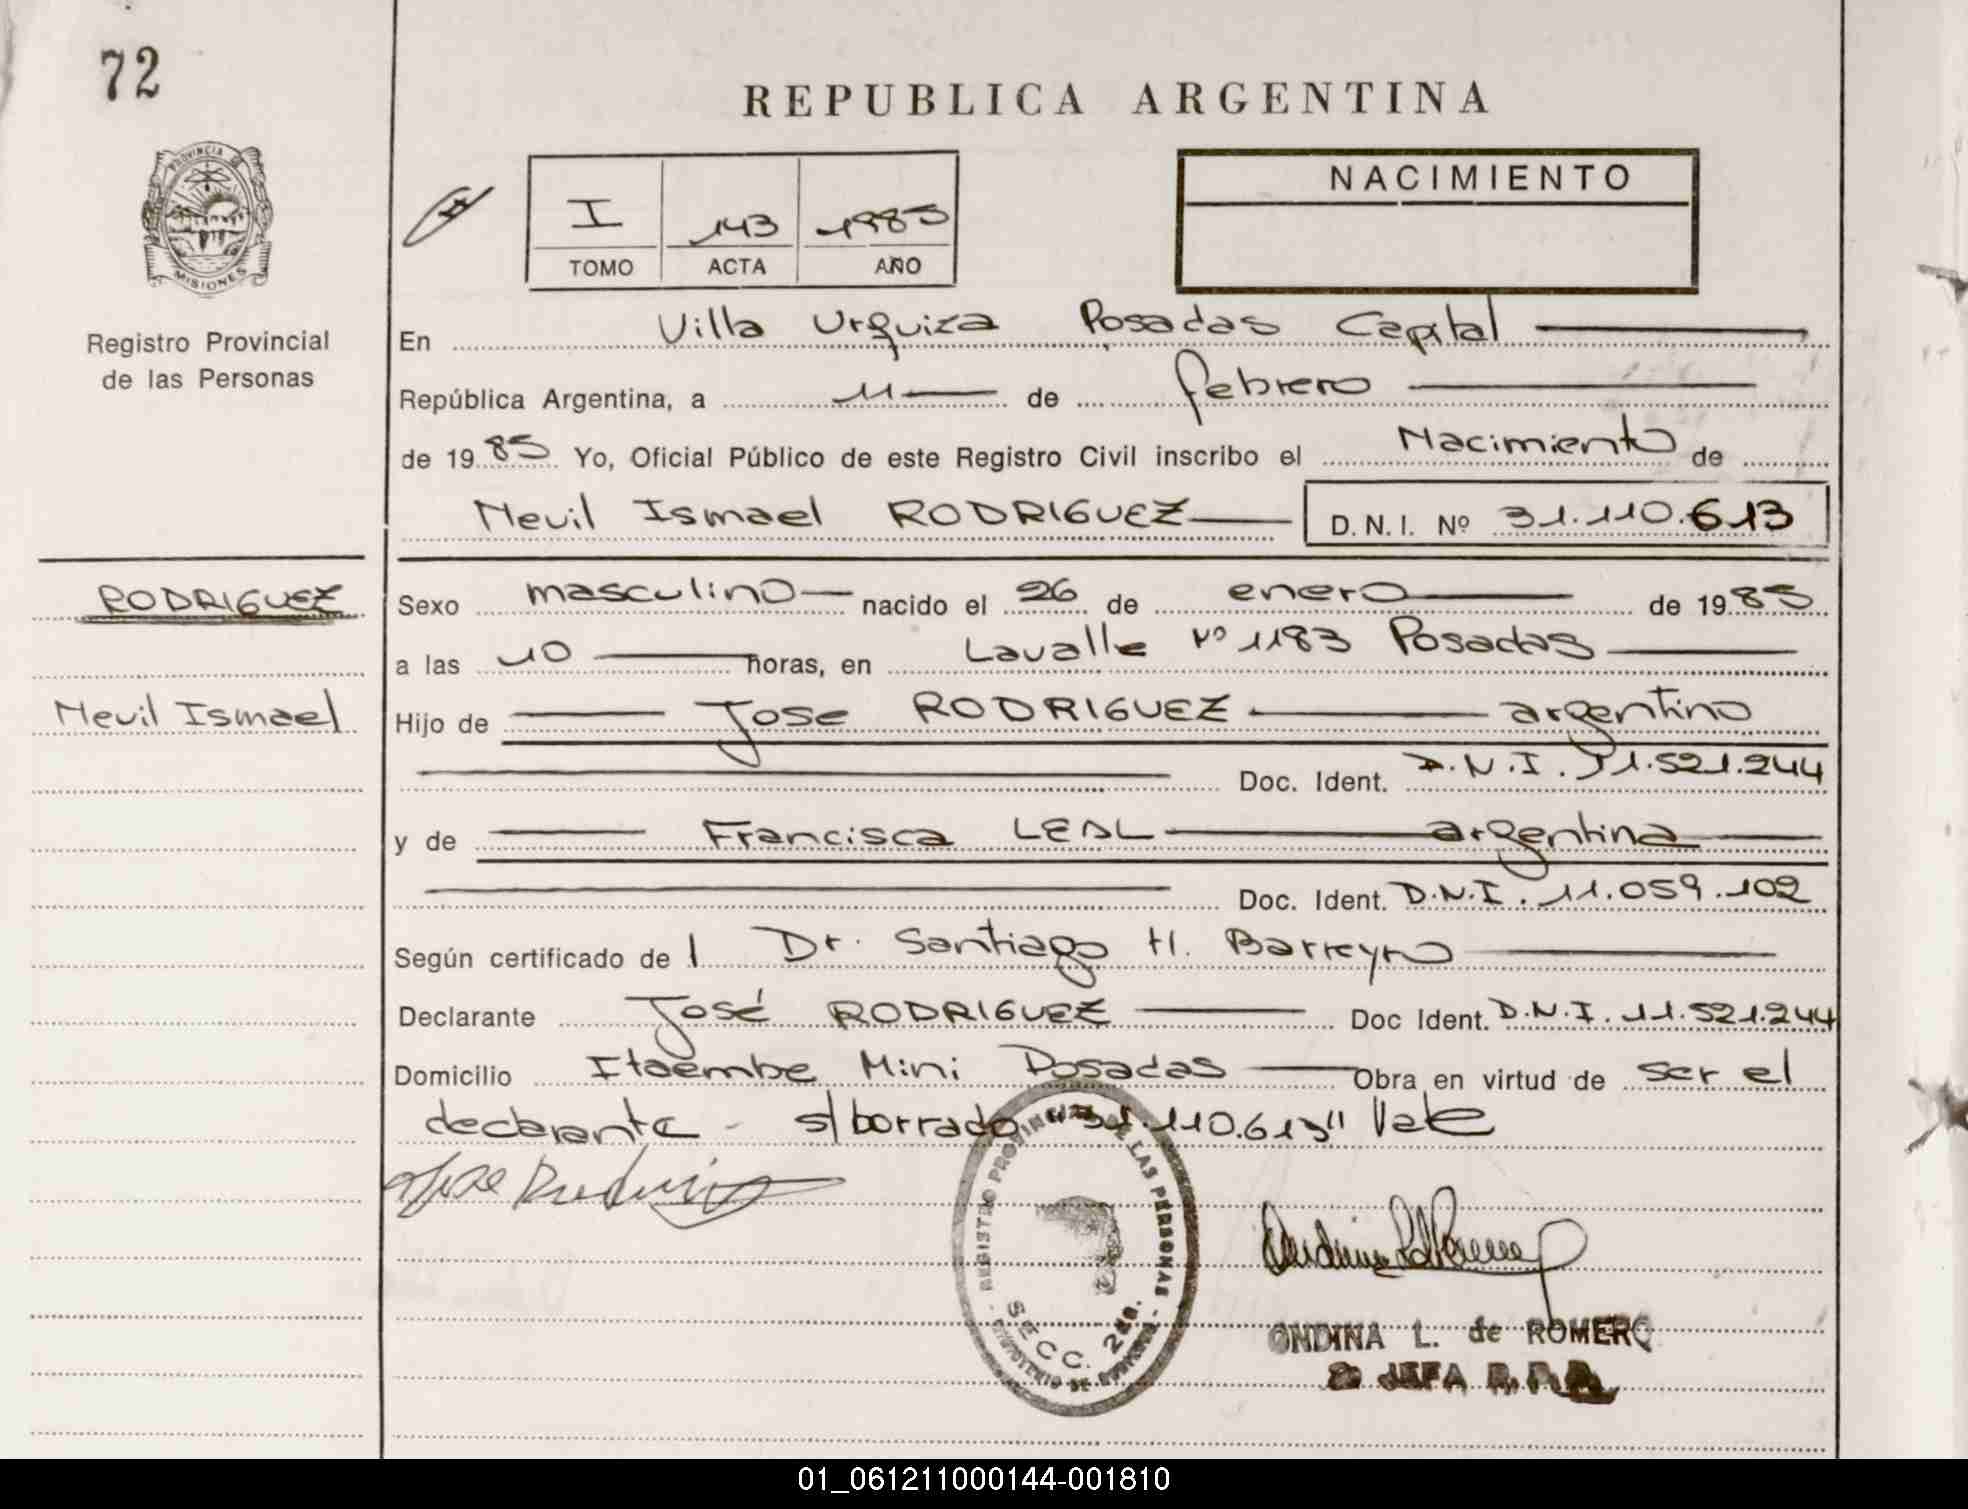 72
REPUBLICA ARGENTINA
PROVINCIA DE
MISIONES
Registro Provincial
de las Personas
I 143 1985
TOMO ACTA AÑO
NACIMIENTO
En Villa Urquiza Posadas Capital
República Argentina, a 11 de febrero
de 1985 Yo, Oficial Público de este Registro Civil inscribo el Nacimiento de
Nevil Ismael RODRIGUEZ D.N.I. Nº 31.110.613
RODRIGUEZ
Nevil Ismael
Sexo masculino nacido el 26 de enero de 1985
a las 10 horas, en Lavalle Nº 1183 Posadas
Hijo de Jose RODRIGUEZ argentino
Doc. Ident. D.N.I. 11.521.244
y de Francisca LEAL argentina
Doc. Ident. D.N.I. 11.059.102
Según certificado de l Dr. Santiago H. Barreyro
Declarante José RODRIGUEZ Doc Ident. D.N.I. 11.521.244
Domicilio Itaembe Mini Posadas Obra en virtud de ser el
declarante - s/borrado "31.110.613" Vale
REGISTRO PROVINCIAL DE LAS PERSONAS
SECC. 2da.
ONDINA L. de ROMERO
JEFA
01_061211000144-001810